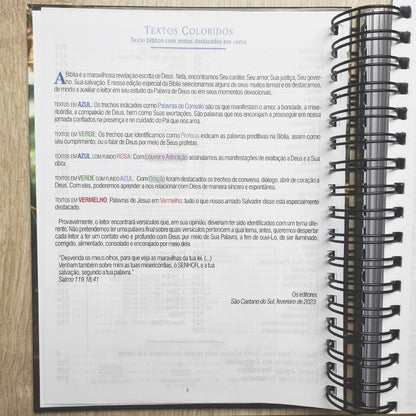 TEXTOS COLORIDOS
Texto bíblico com temas destacados em cores
A Bíblia é a maravilhosa revelação escrita de Deus. Nela, encontramos Seu caráter, Seu amor, Sua justiça, Seu gover-
no, Sua salvação. E nessa edição especial da Bíblia selecionamos alguns de seus muitos temas e os destacamos,
de modo a auxiliar o leitor em seu estudo da Palavra de Deus ou em seus momentos devocionais.
TEXTOS EM AZUL: Os trechos indicados como Palavras de Consolo são os que manifestam o amor, a bondade, a mise-
ricórdia, a compaixão de Deus, bem como Suas exortações. São palavras que nos encorajam a prosseguir em nossa
jornada confiados na presença e no cuidado do Pai que nos ama.
TEXTOS EM VERDE: Os trechos que identificamos como Profecia indicam as palavras preditivas na Bíblia, assim como
seu cumprimento, ou o falar de Deus por meio de Seus profetas.
TEXTOS EM AZUL COM FUNDO ROSA: Com Louvor e Adoração assinalamos as manifestações de exaltação a Deus e a Sua
obra.
TEXTOS EM VERDE COM FUNDO AZUL: Com Oração foram destacados os trechos de conversa, diálogo, abrir de coração a
Deus. Com eles, poderemos aprender a nos relacionar com Deus de maneira sincera e espontânea.
TEXTOS EM VERMELHO: Palavras de Jesus em Vermelho: tudo o que nosso amado Salvador disse está especialmente
destacado.
Provavelmente, o leitor encontrará versículos que, em sua opinião, deveriam ter sido identificados com um tema dife-
rente. Não pretendemos ter uma palavra final sobre quais versículos pertencem a qual tema; antes, queremos despertar
cada leitor a ter um contato vivo e profundo com Deus por meio de Sua Palavra, a fim de ouvi-Lo, de ser iluminado,
corrigido, alimentado, consolado e encorajado por meio dela.
"Desvenda os meus olhos, para que veja as maravilhas da tua lei. (...)
Venham também sobre mim as tuas misericórdias, ó SENHOR, e a tua
salvação, segundo a tua palavra."
Salmo 119.18;41
Os editores
São Caetano do Sul, fevereiro de 2023.
4